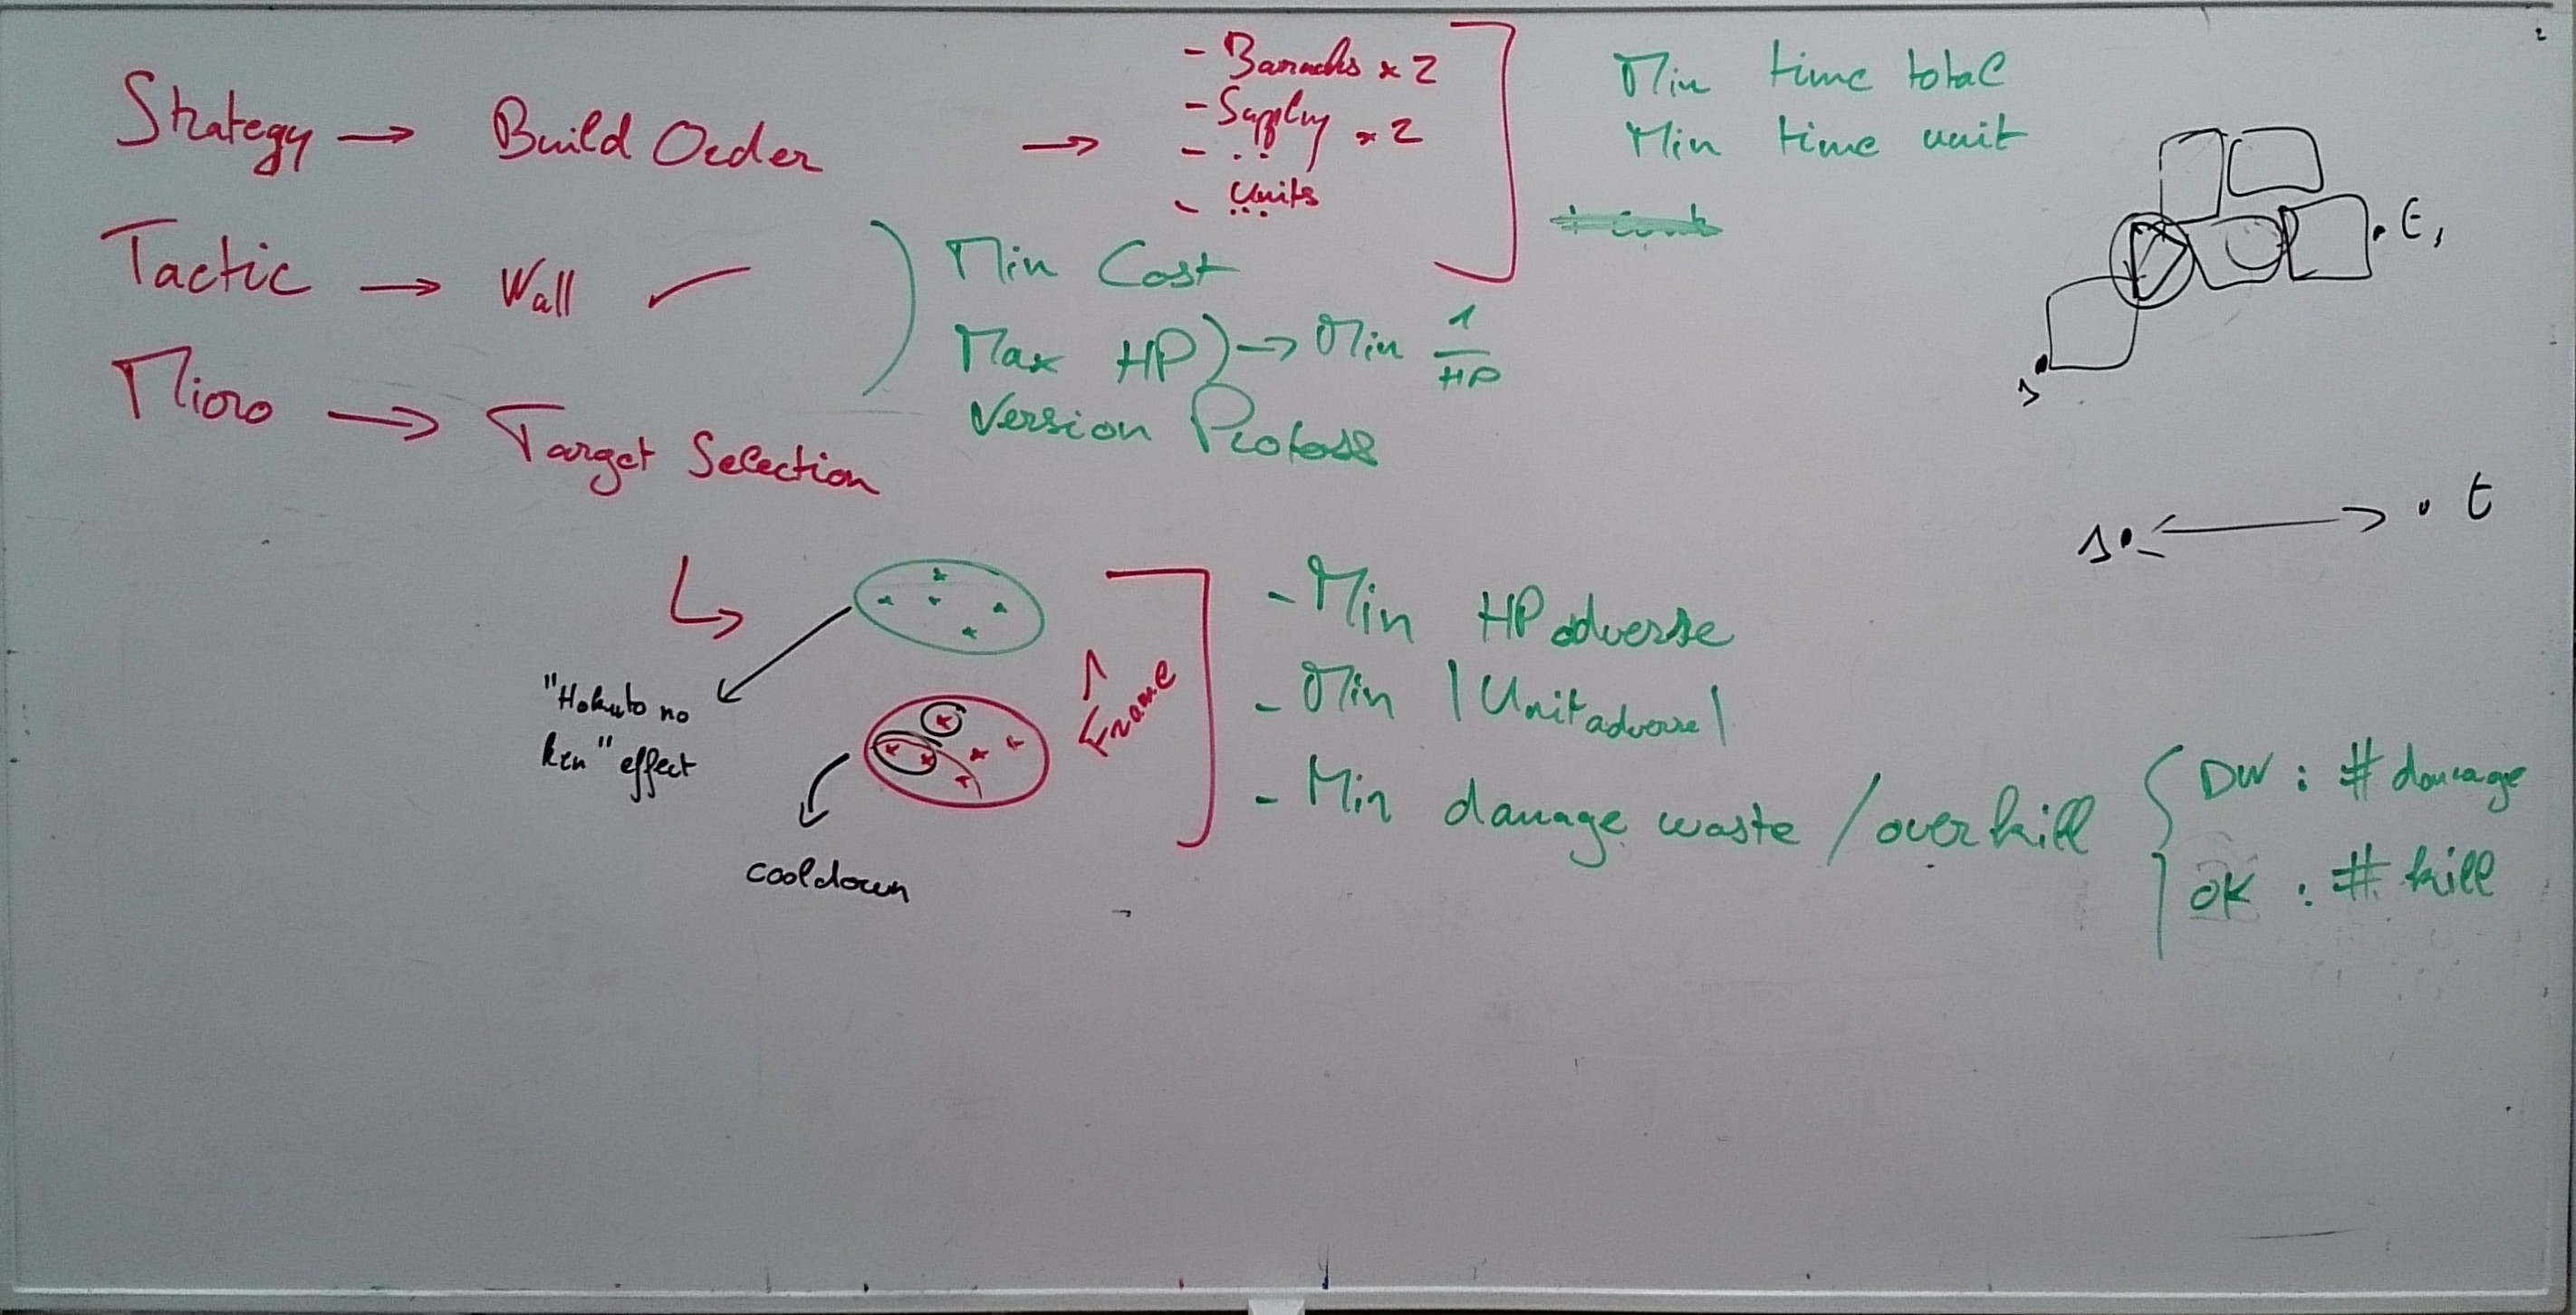 Strategy → Build Order →
- Barracks x 2
- Supply x 2
- ...
- Units
...
Min time total
Min time unit
Tactic → Wall ✓
Min Cost
Max HP) → Min 1/HP
Version Protoss
Micro → Target Selection
"Hokuto no
ken" effect
cooldown
1 Frame
- Min HP adverse
- Min |Unit adverse|
- Min damage waste / overkill
DW : # damage
OK : # kill
s
t
s
t